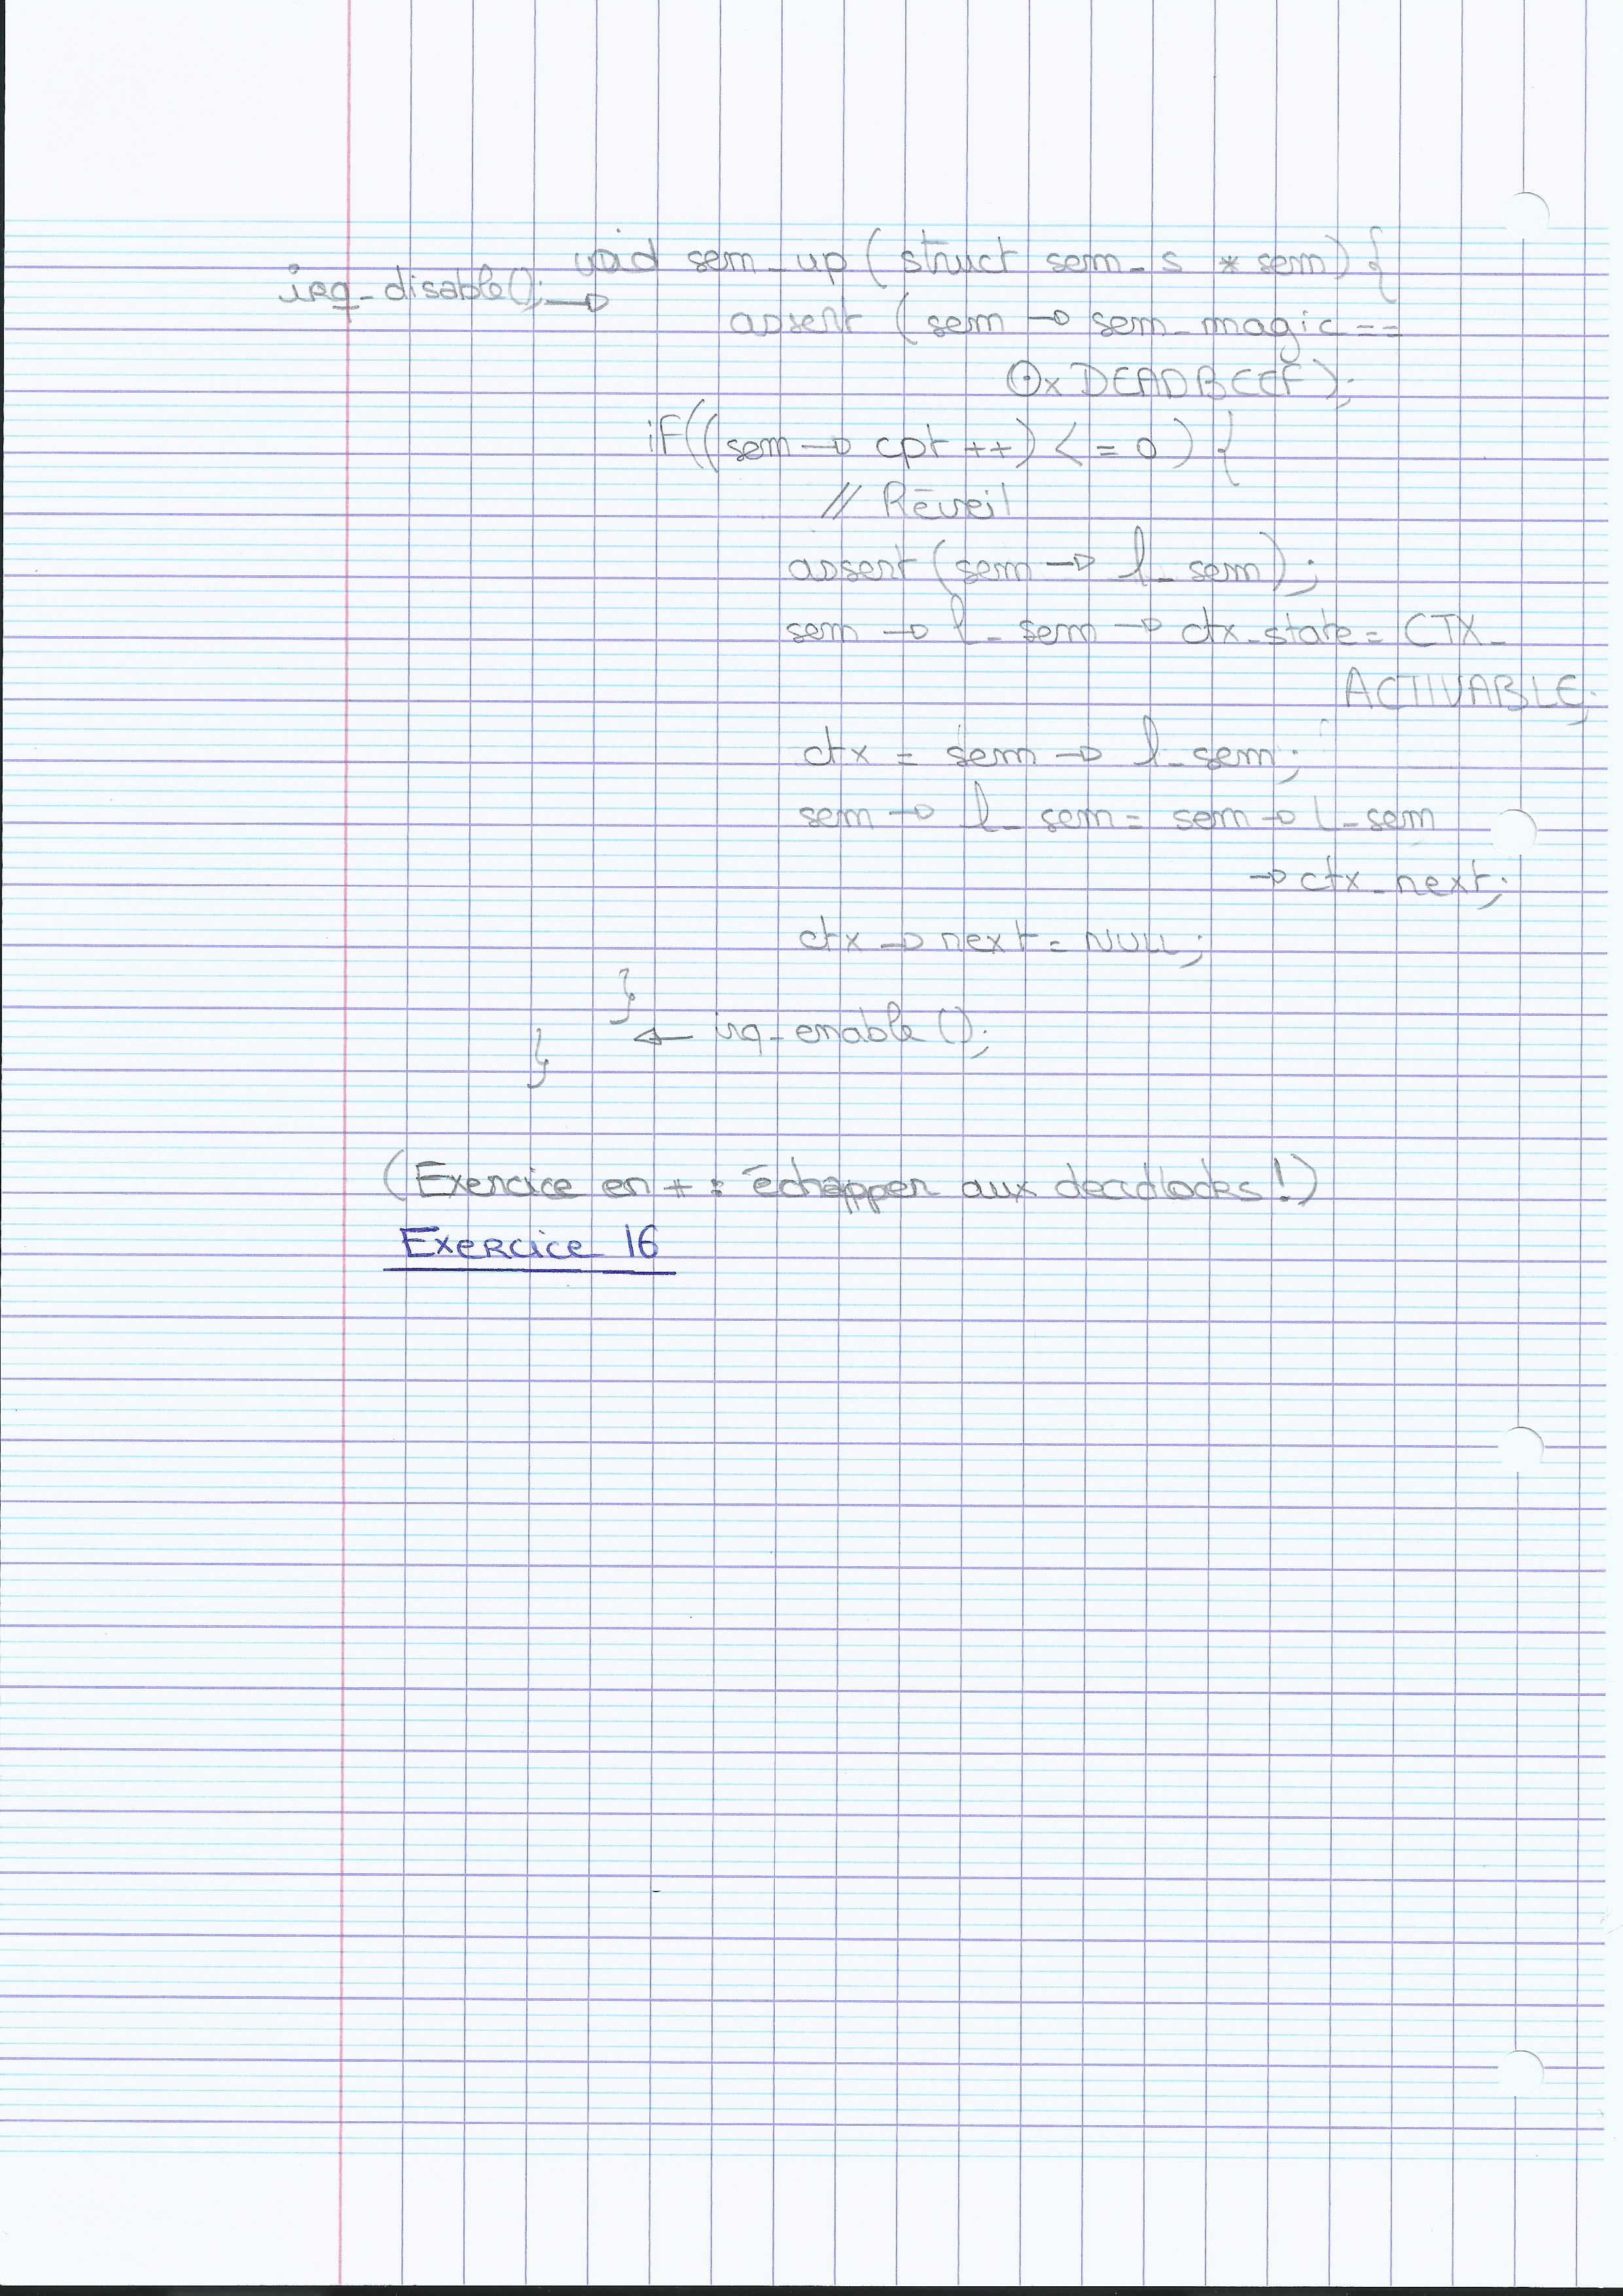 void sem_up (struct sem_s * sem) {
irq_disable(); →
assert (sem → sem_magic ==
0x DEADBEEF);
if ((sem → cpt ++) <= 0) {
// Réveil
assert (sem → l_sem);
sem → l_sem → ctx_state = CTX_
ACTIVABLE;
ctx = sem → l_sem;
sem → l_sem = sem → l_sem
→ ctx_next;
ctx → next = NULL;
}
← irq_enable ();
}
(Exercice en + : échapper aux deadlocks !)
Exercice 16